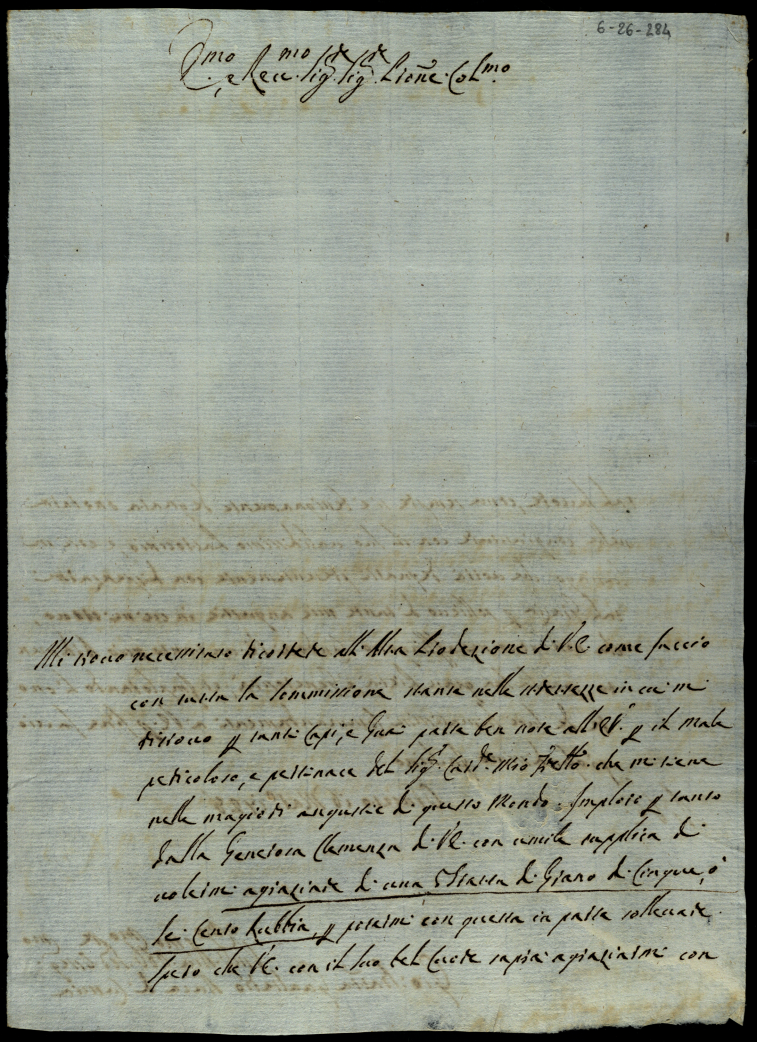 6-26-284
Ill.mo e Rev.mo Sig.re Sig.re P.rone Col.mo
Mi trovo necessitato ricorrere all'Alta Protezione di V.E. come faccio
con tutta la sommissione stante nelle strettezze in cui mi
ritrovo p tanti Capi, e Guai parte ben note all'E.V. p il male
pericoloso, e pertinace del Sig.r Card.le mio Fr̃ello che mi tiene
nelle magiori angustie di questo Mondo. Imploro p tanto
dalla Generosa Clemenza di V.E. con umile supplica di
volermi agraziare di una Tratta di Grano di Cinque, ò
sei Cento Rubbia, p potermi con questa in parte sollevare.
Spero che V.E. con il suo bel Cuore saprà agraziarmi con